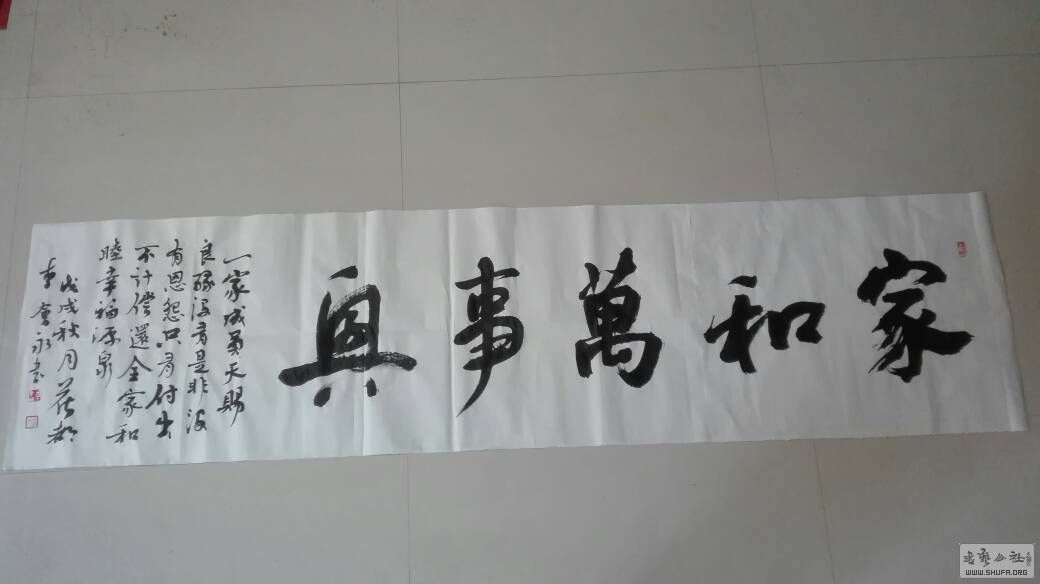 家和萬事興
一家成員天賜
良緣没有是非没
有恩怨只有付出
不計償還全家和
睦幸福源泉
戊戌秋月花都
李會永書
書藝公社
WWW.SHUFA.ORG